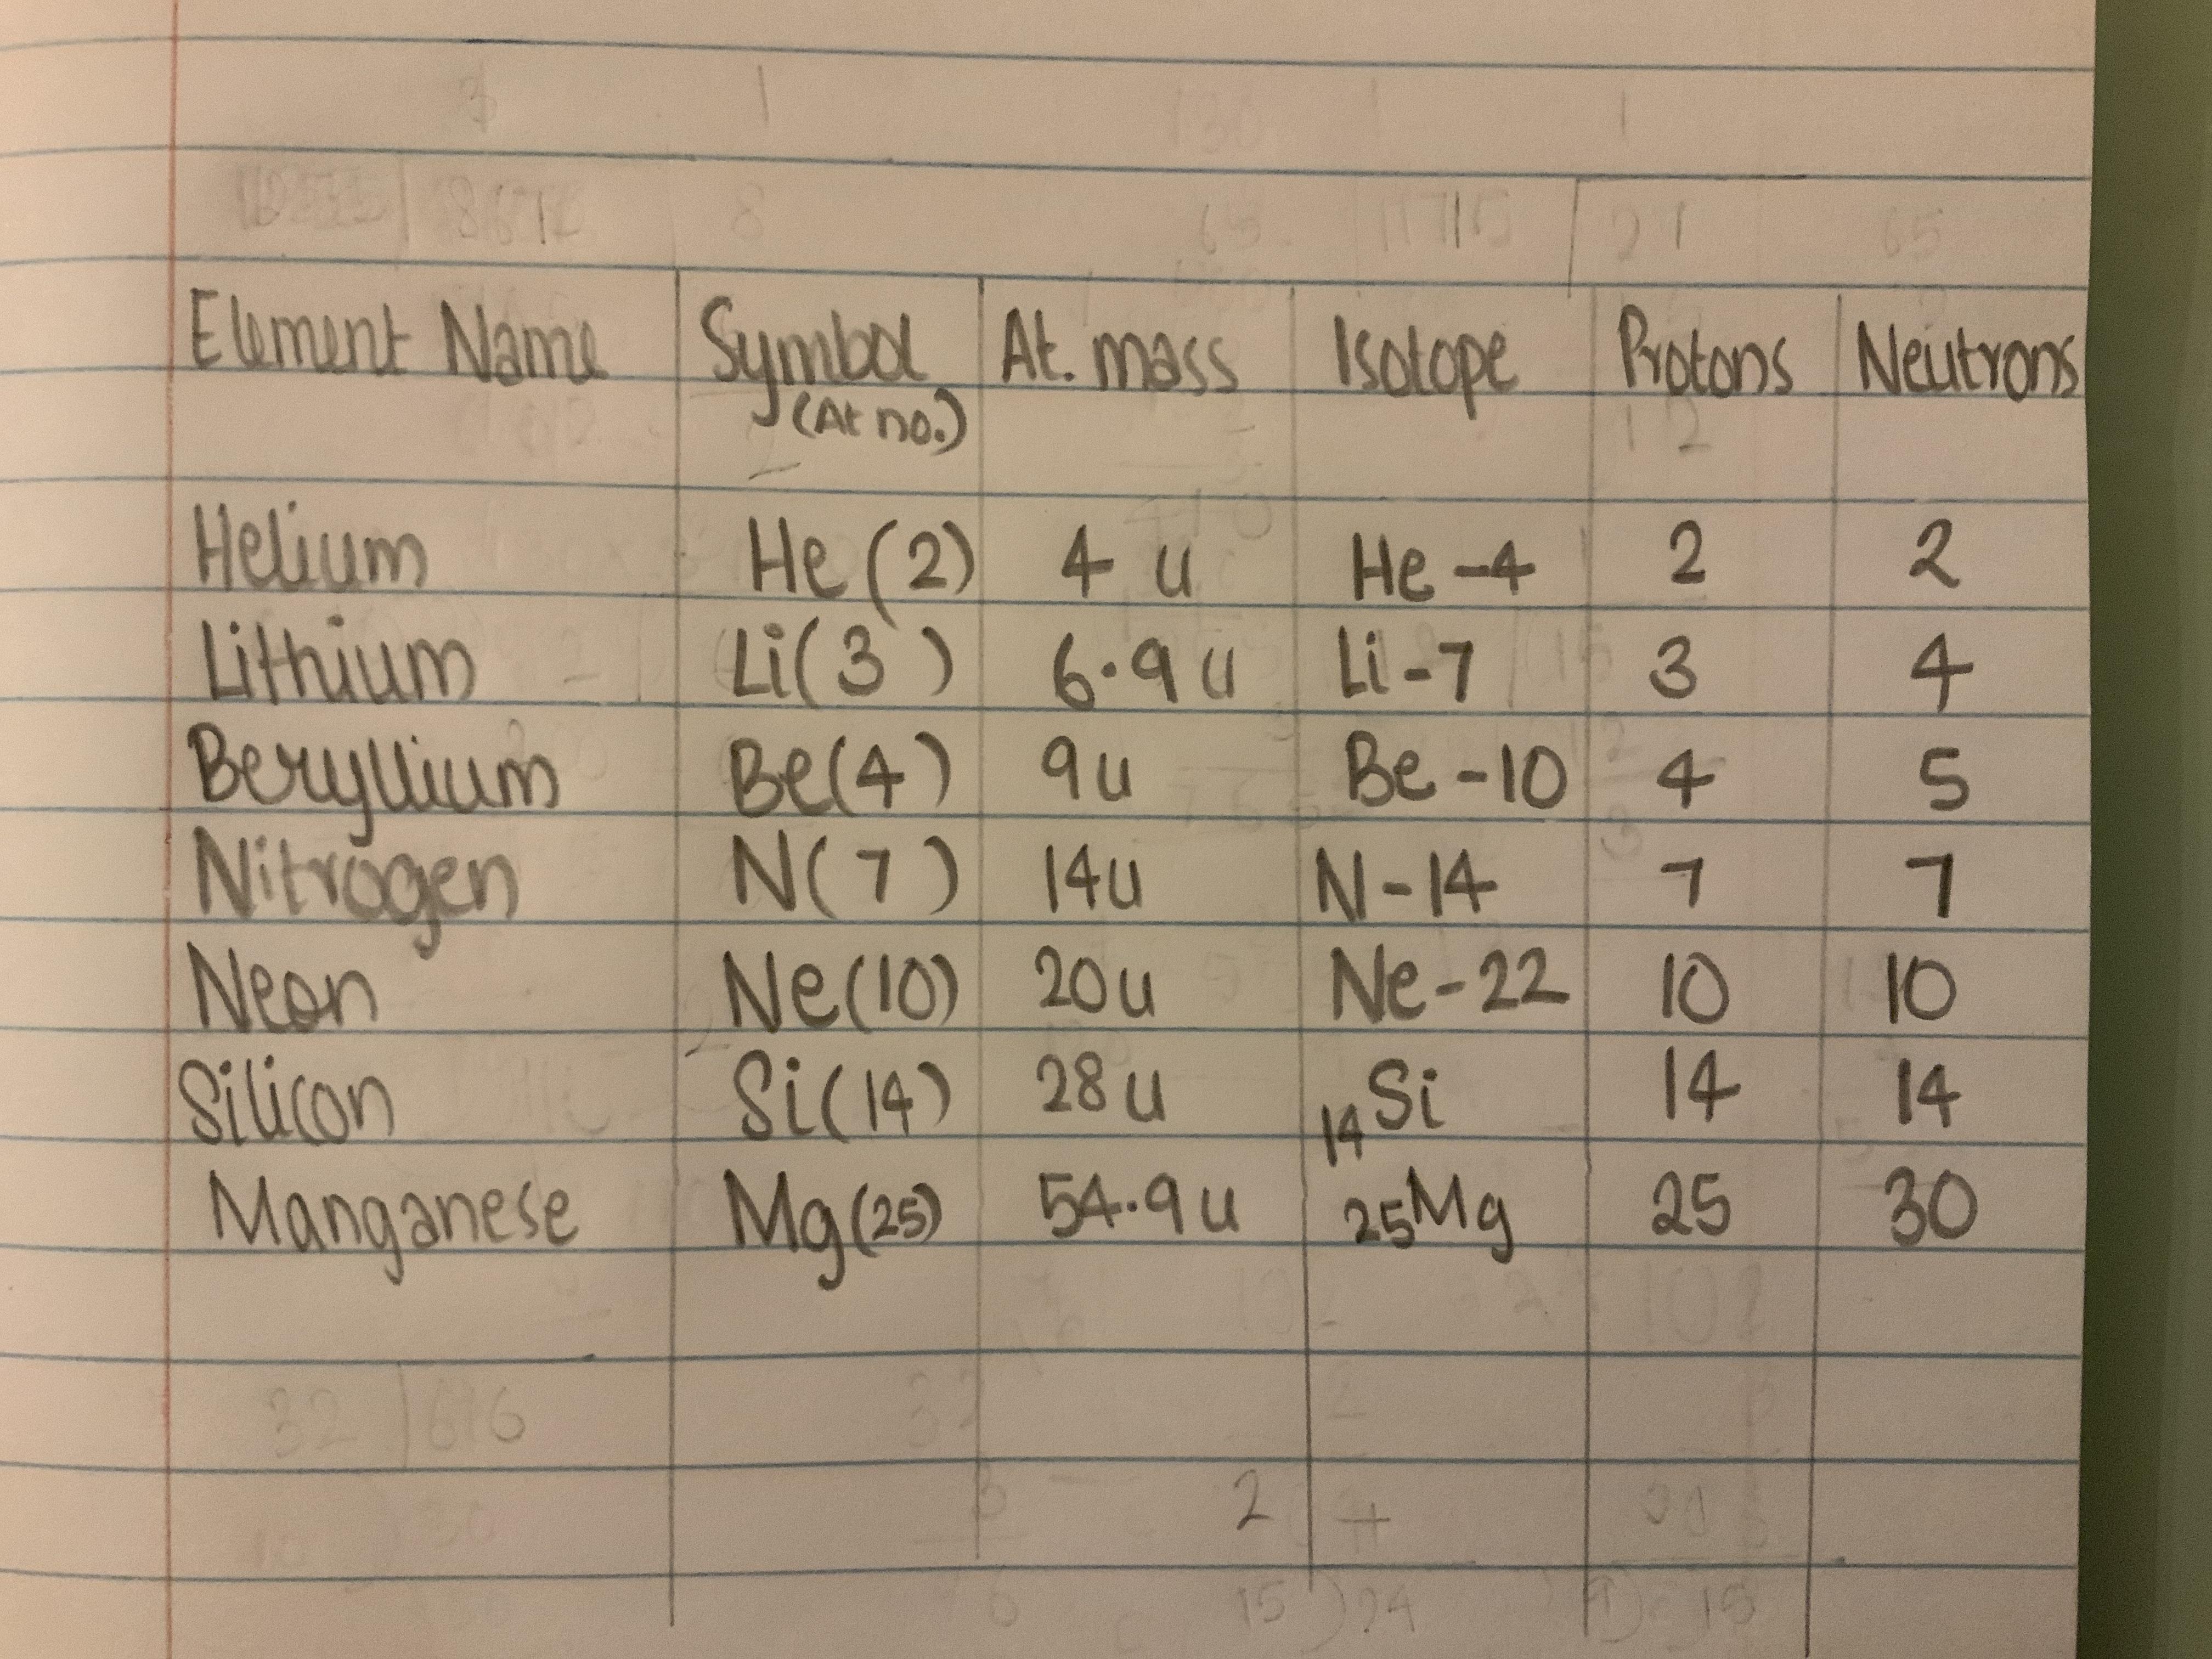 Element Name Symbol At. mass Isotope Protons Neutrons
(At no.)
Helium He (2) 4 u He-4 2 2
Lithium Li(3) 6.9 u Li-7 3 4
Beryllium Be(4) 9u Be-10 4 5
Nitrogen N(7) 14u N-14 7 7
Neon Ne(10) 20u Ne-22 10 10
Silicon Si(14) 28u 14Si 14 14
Manganese Mg(25) 54.9u 25Mg 25 30